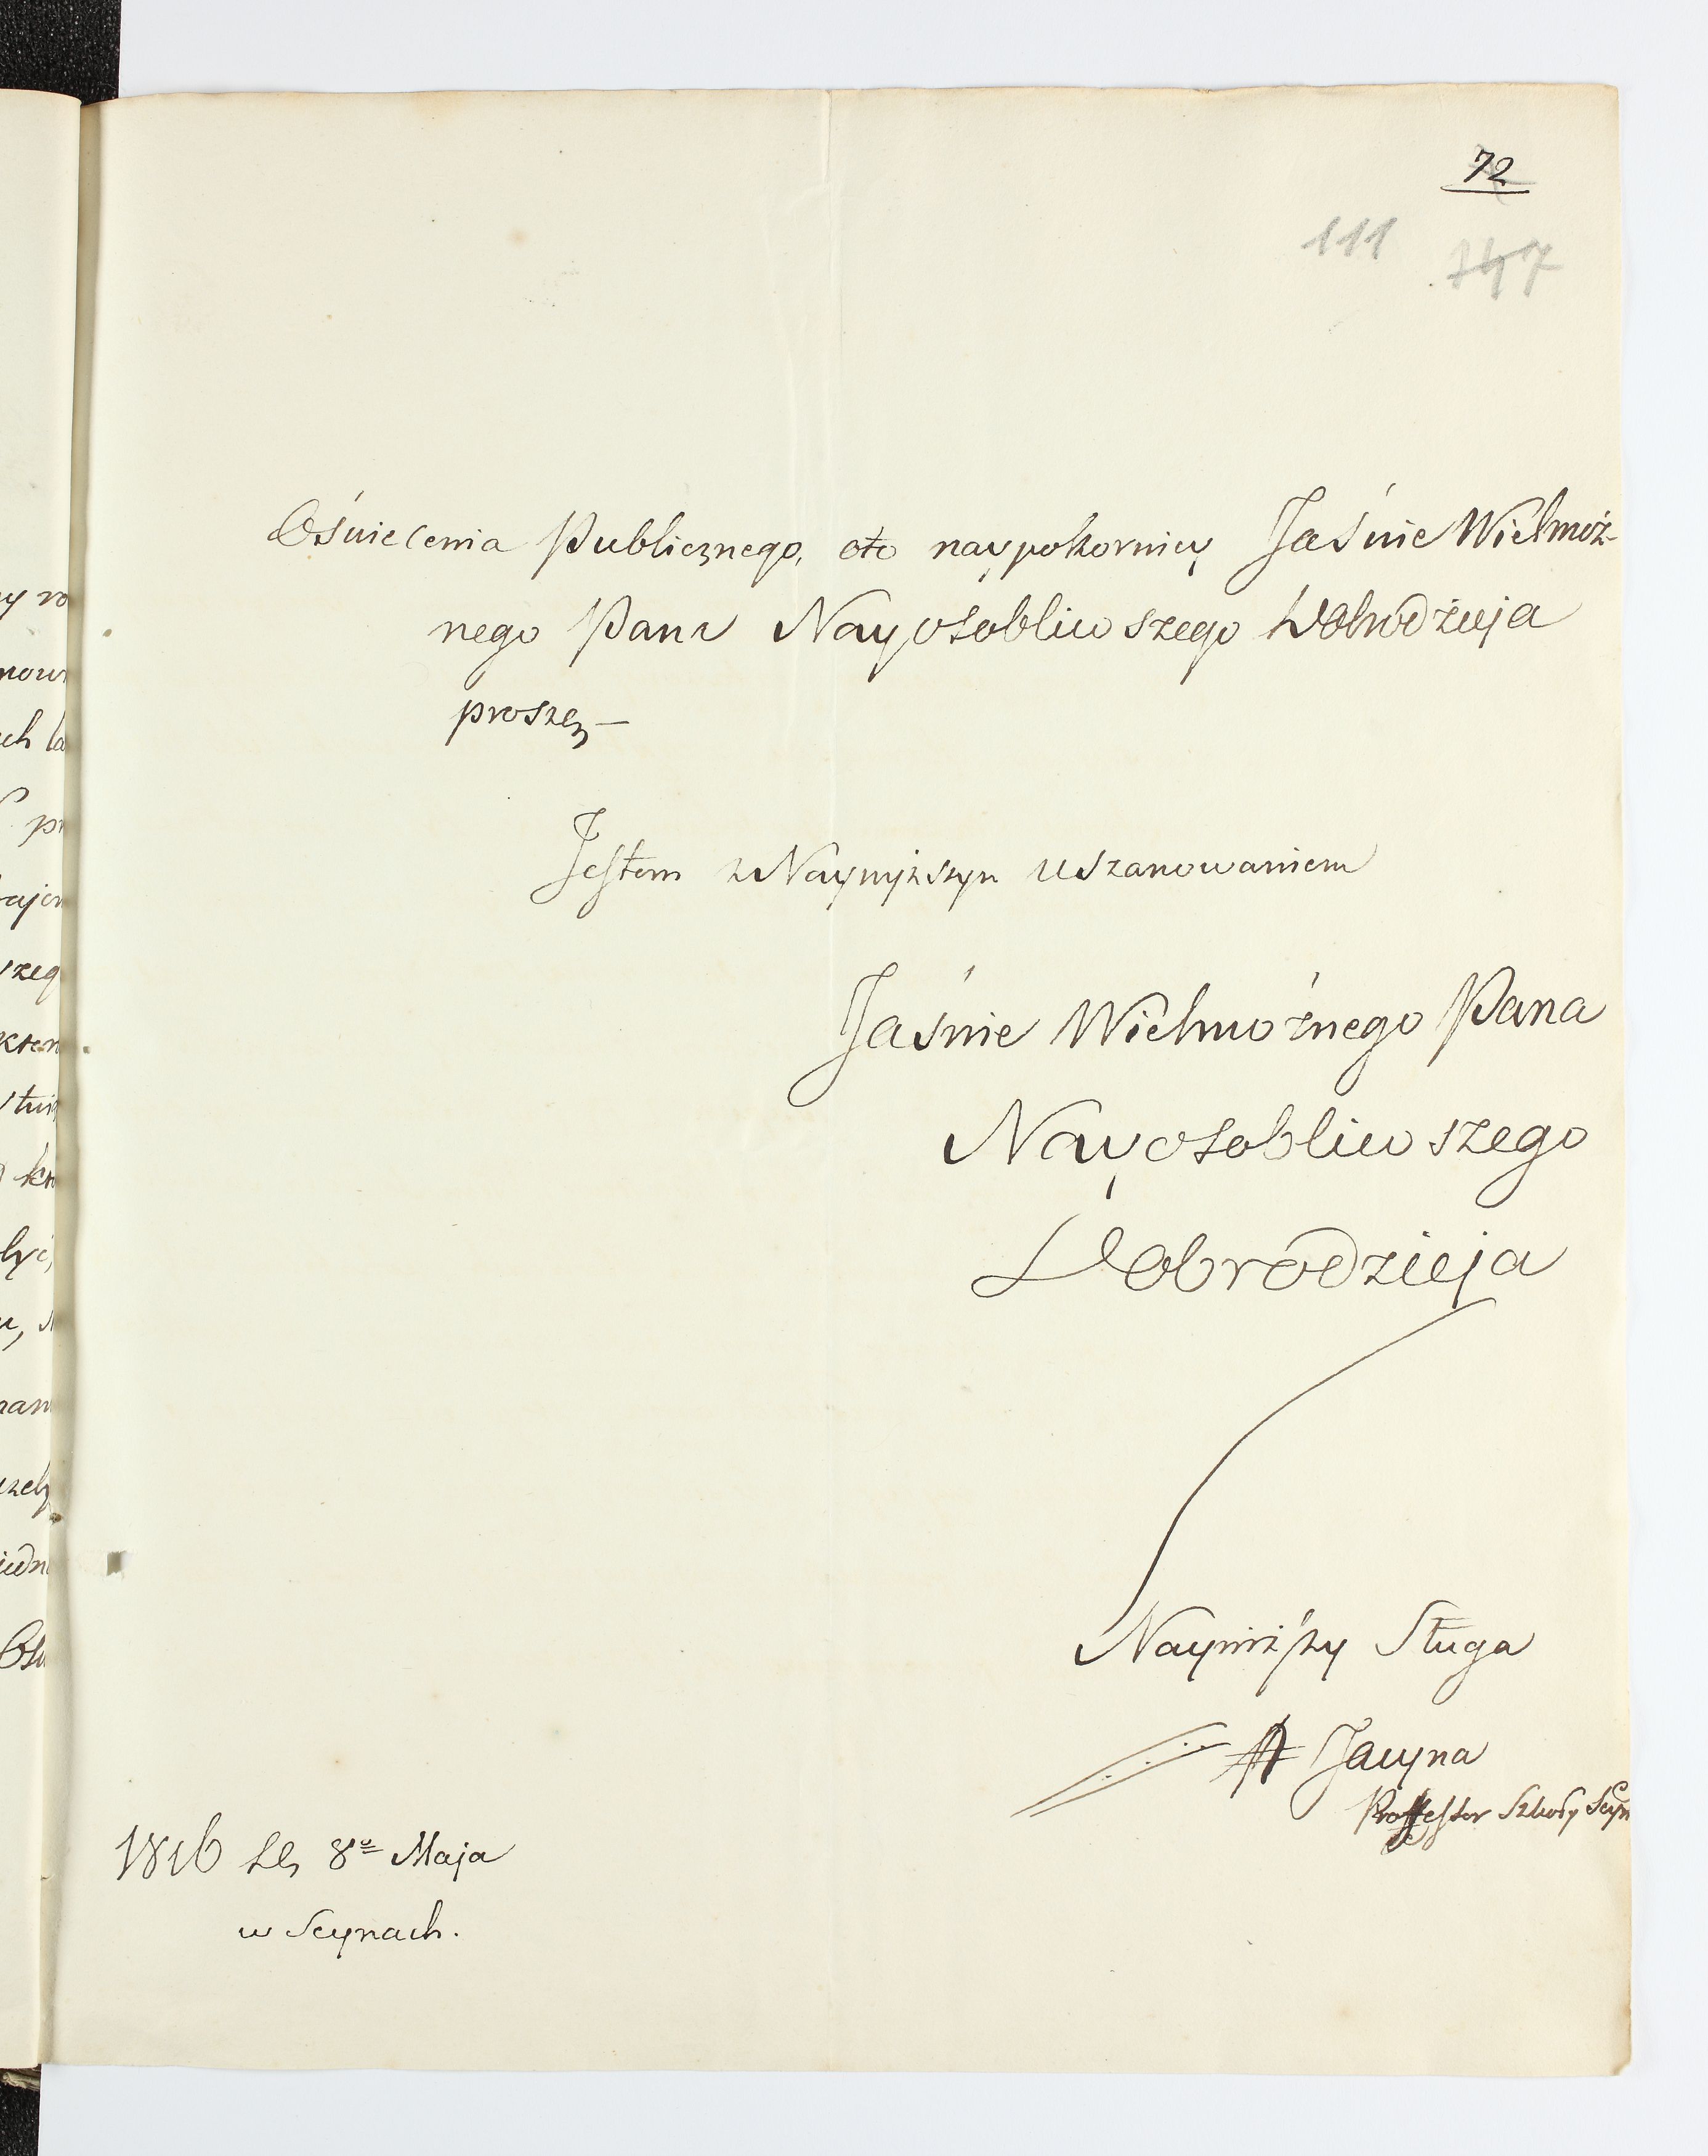 72
111 147
Oświecenia Publicznego, oto naypokorniey Jaśnie Wielmoż-
nego Pana Nayosobliwszego Dobrodzieja
proszę —
Jestem z Nayniższym uszanowaniem
Jaśnie Wielmożnego Pana
Nayosobliwszego
Dobrodzieja
Nayniższy Sługa
A Jacyna
Professor Szkoły Seyn
1816 d 8º Maja
w Seynach.